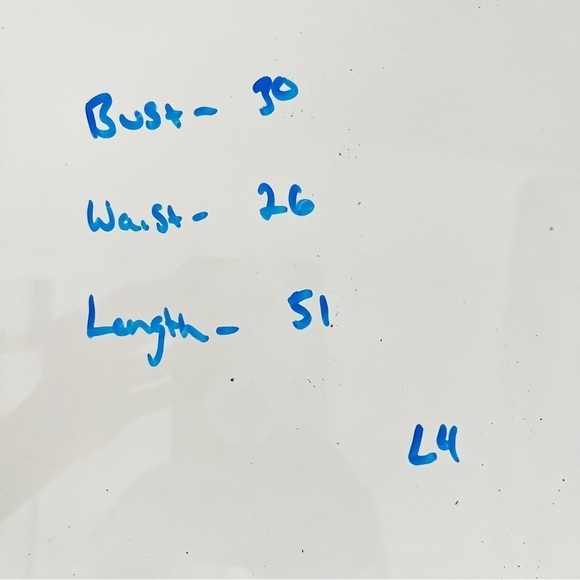 Bust - 30
Waist - 26
Length - 51
L4